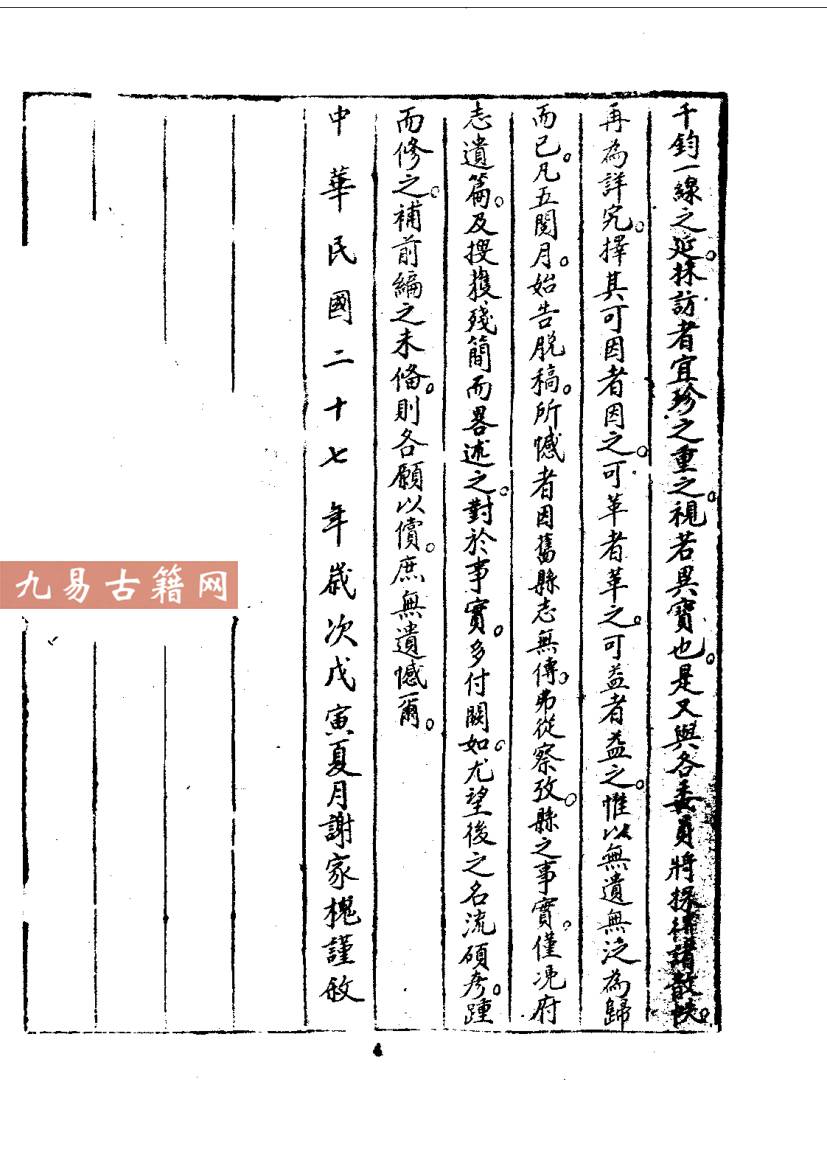 千鈞一線之延。採訪者宜珍之重之。視若異寶也。是又與各委員將採得諸散帙。
再為詳究。擇其可因者因之。可革者革之。可益者益之。惟以無遺無泛為歸
而已。凡五閱月。始告脫稿。所憾者因舊縣志無傳。弗從察攷。縣之事實。僅凴府
志遺篇。及搜獲殘簡而畧述之。對於事實。多付闕如。尤望後之名流碩彥。踵
而修之。補前編之未備。則各願以償。庶無遺憾爾。
中華民國二十七年歲次戊寅夏月謝家槐謹敘
九易古籍网